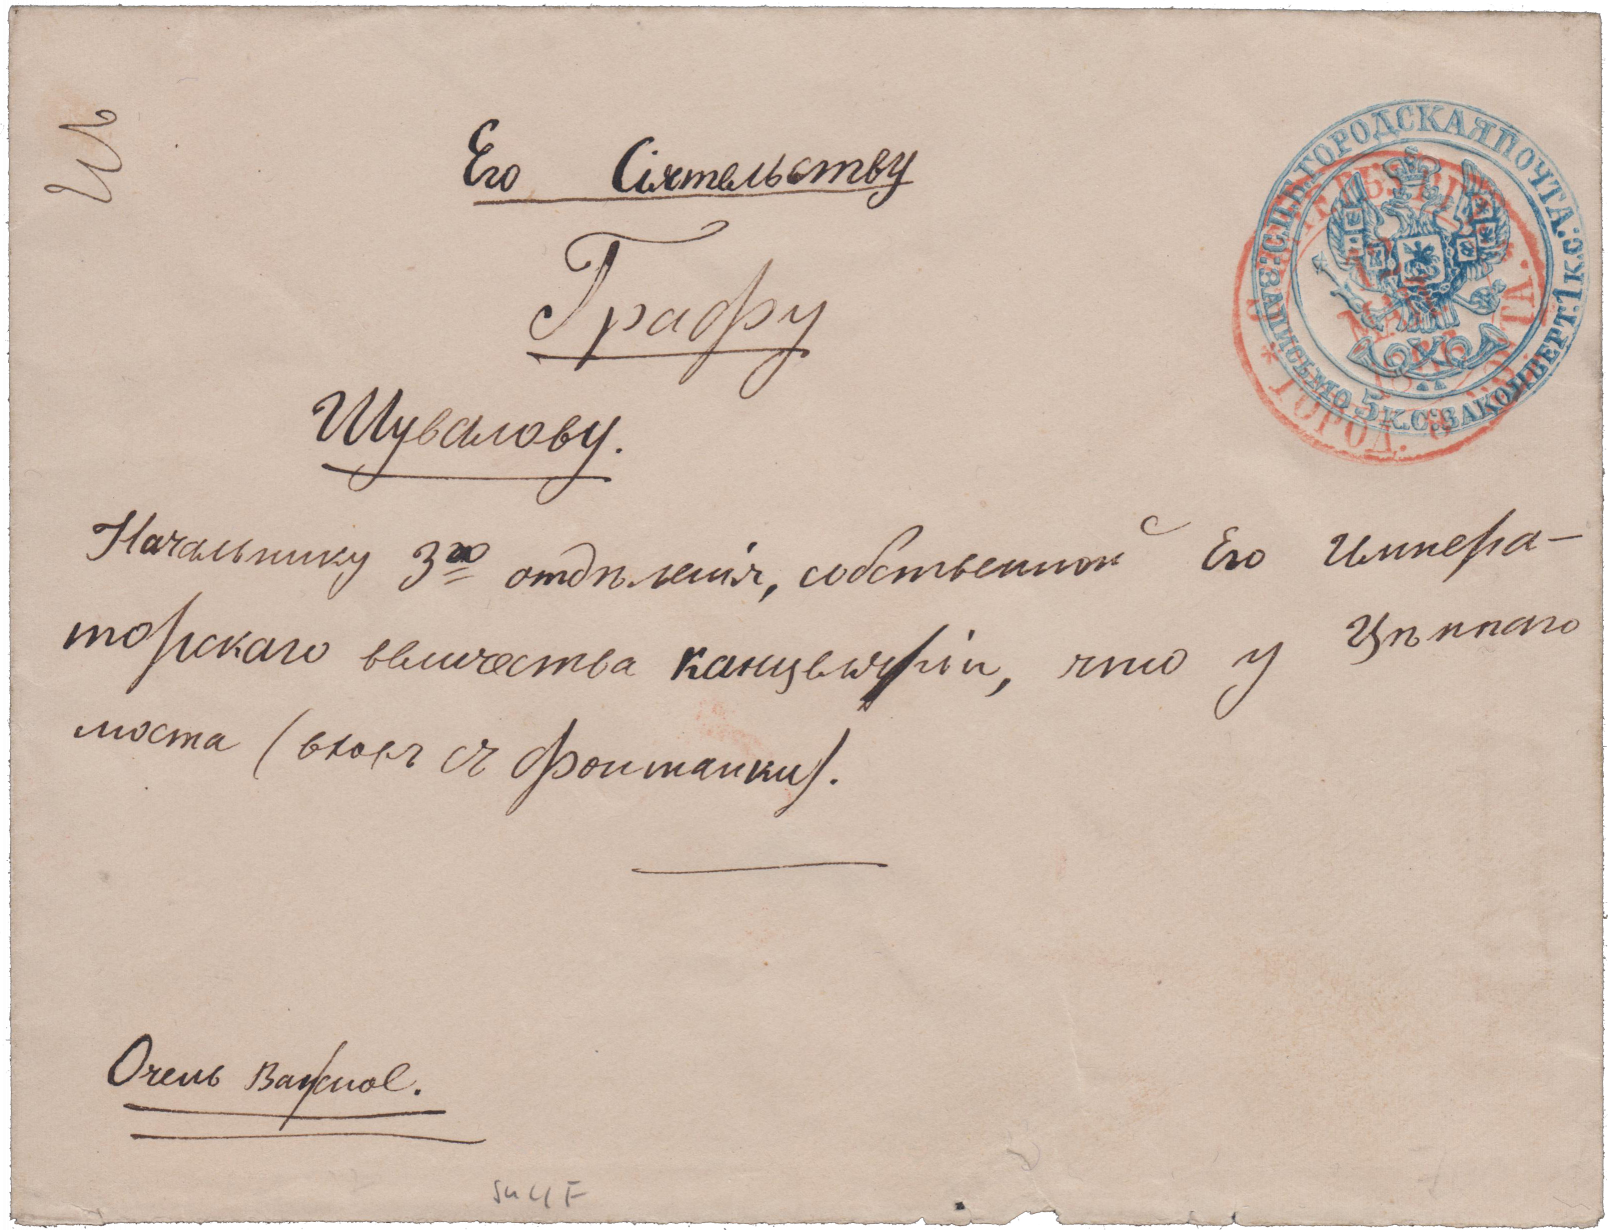 Его Сіятельству
Графу
Шувалову.
Начальнику 3го отдѣленія, собственной Его Импера-
торскаго величества канцеляріи, что у Цѣпнаго
моста (входъ съ Фонтанки).
Очень важное.
С.П.Б. ГОРОДСКАЯ ПОЧТА:
ЗА ПИСЬМО 5 К.С. ЗА КОНВЕРТ. 1 К.С.
ГОРОД. ПОЧТА.